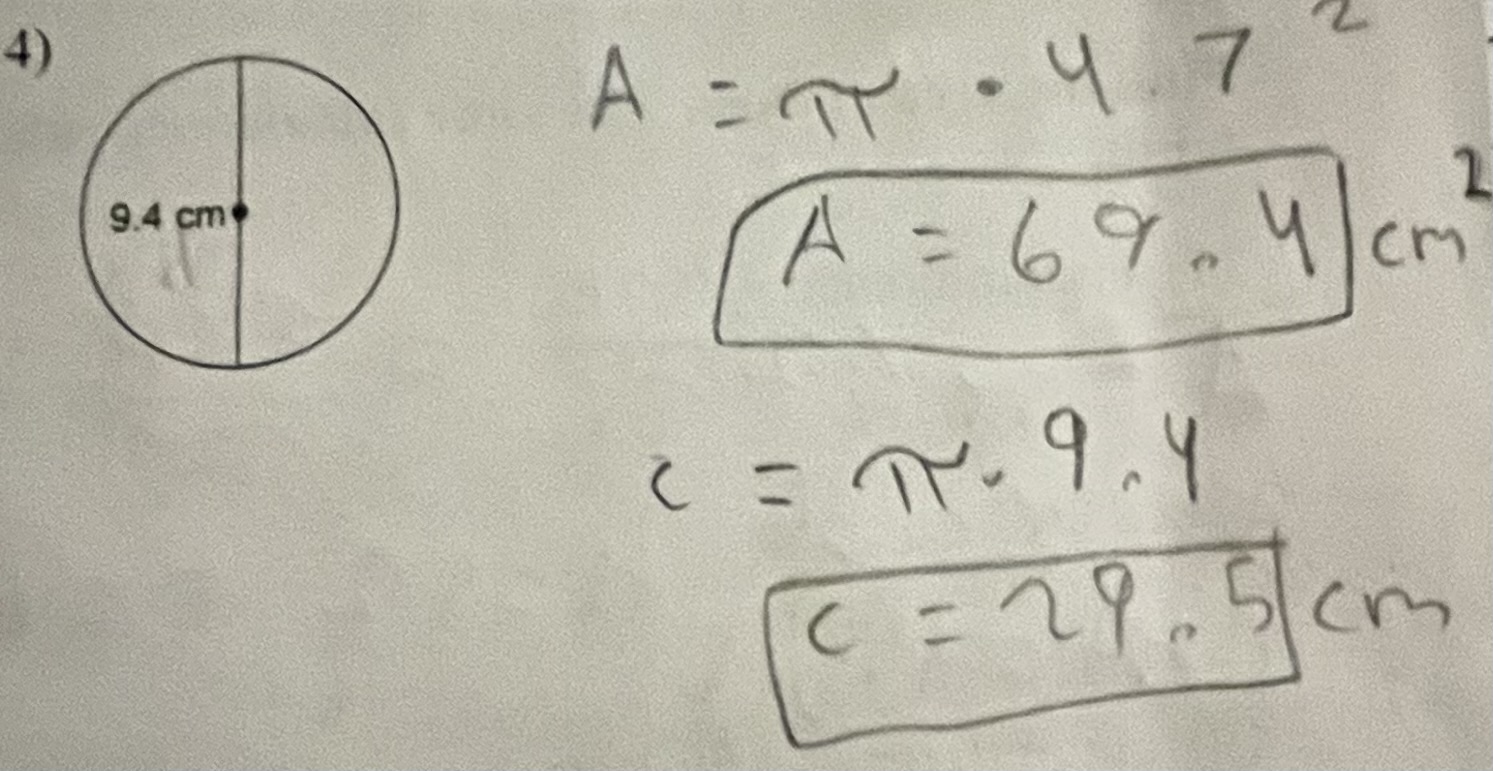 4)
9.4 cm
A = π · 4.7²
A = 69.4 cm²
c = π · 9.4
c = 29.5 cm